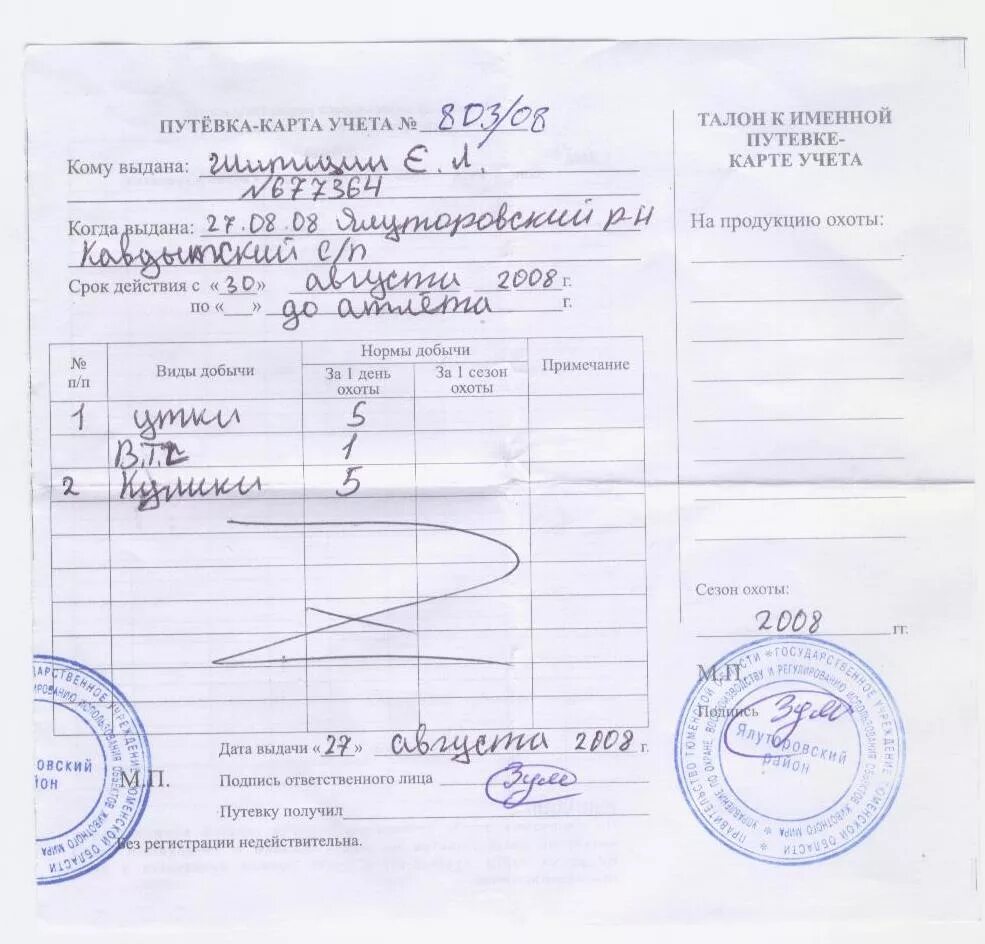 ПУТЁВКА-КАРТА УЧЕТА № 803/08
Кому выдана: Шипицин Е. Л.
№677364
Когда выдана: 27.08.08 Ялуторовский р-н
Кавдыкский с/п
Срок действия с «30» августа 2008 г.
по «___» до отлёта г.
№ п/п
Виды добычи
Нормы добычи
За 1 день охоты
За 1 сезон охоты
Примечание
1 утки 5
В.Т. 1
2 Кулики 5
Дата выдачи «27» августа 2008 г.
М.П.
Подпись ответственного лица
Путевку получил
Без регистрации недействительна.
ТАЛОН К ИМЕННОЙ
ПУТЕВКЕ-
КАРТЕ УЧЕТА
На продукцию охоты:
Сезон охоты:
2008 гг.
М.П.
Подпись
ПРАВИТЕЛЬСТВО ТЮМЕНСКОЙ ОБЛАСТИ * ГОСУДАРСТВЕННОЕ УЧРЕЖДЕНИЕ ТЮМЕНСКОЙ ОБЛАСТИ *
УПРАВЛЕНИЕ ПО ОХРАНЕ, ВОСПРОИЗВОДСТВУ И РЕГУЛИРОВАНИЮ ИСПОЛЬЗОВАНИЯ ОБЪЕКТОВ ЖИВОТНОГО МИРА *
Ялуторовский
район
ДАРСТВЕННОЕ УЧРЕЖДЕНИЕ ТЮМЕНСКОЙ ОБЛАСТИ
ИРОВАНИЮ ИСПОЛЬЗОВАНИЯ ОБЪЕКТОВ ЖИВОТНОГО МИРА
ОВСКИЙ
ЙОН